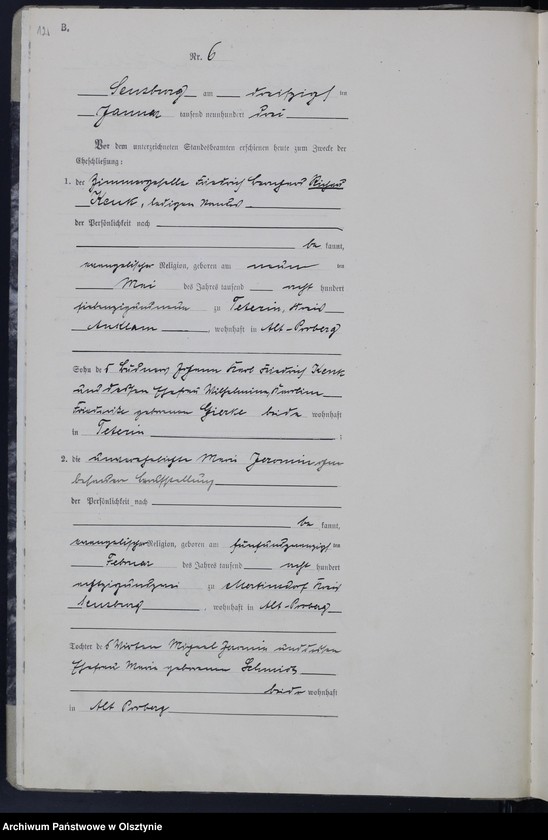 121
B.
Nr. 6
Sensburg am dreißigsten
Januar tausend neunhundert drei
Vor dem unterzeichneten Standesbeamten erschienen heute zum Zwecke der
Eheschließung:
1. der Zimmergeselle Friedrich Bernhard Richard
Kenk, ledigen Standes
der Persönlichkeit nach
be kannt,
evangelischer Religion, geboren am neunten
Mai des Jahres tausend acht hundert
siebenzigundneun zu Teterin, Kreis
Anklam, wohnhaft in Alt-
Sohn des Büdners Johann Karl Friedrich Kenk
und dessen Ehefrau Wilhelmine, Karoline
Friederike geborenen Gierke beide wohnhaft
in Teterin ;
2. die unverehelichte Marie Jeromin ohne
besondere Berufsstellung
der Persönlichkeit nach
be kannt,
evangelischer Religion, geboren am fünfundzwanzigsten
Februar des Jahres tausend acht hundert
achtzigundzwei zu Martinsdorf Kreis
Sensburg, wohnhaft in Alt-
Tochter des Wirten Michael Jeromin und dessen
Ehefrau Marie geborenen Schmidt
beide wohnhaft
in Alt
Archiwum Państwowe w Olsztynie